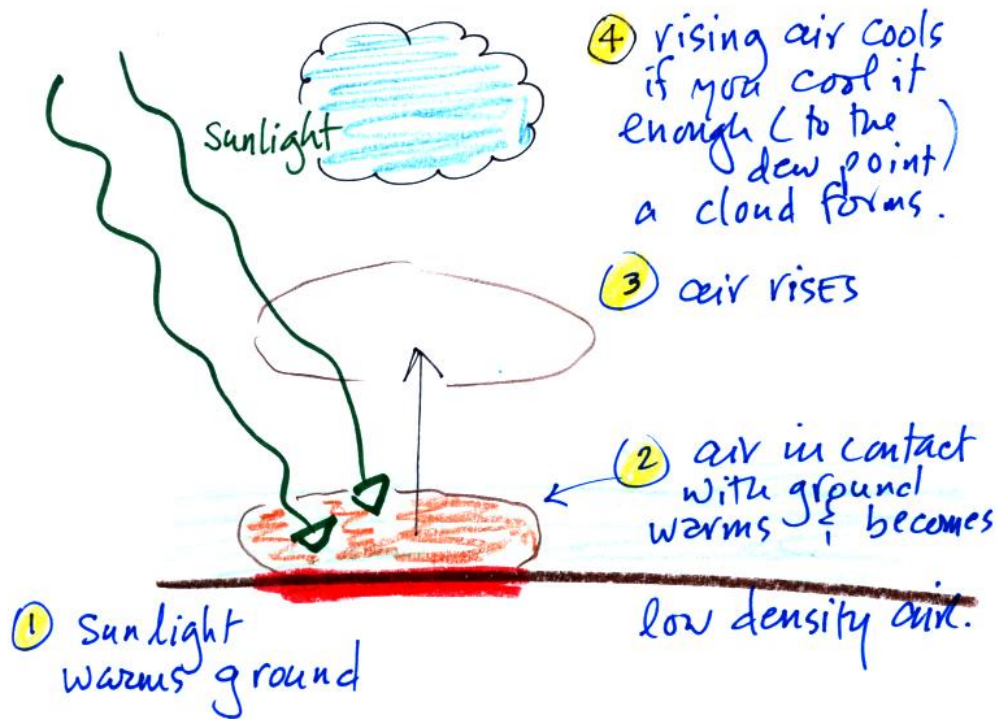 Sunlight
④ rising air cools
if you cool it
enough (to the
dew point)
a cloud forms.
③ air risEs
② air in contact
with ground
warms & becomes
low density air.
① Sunlight
warms ground